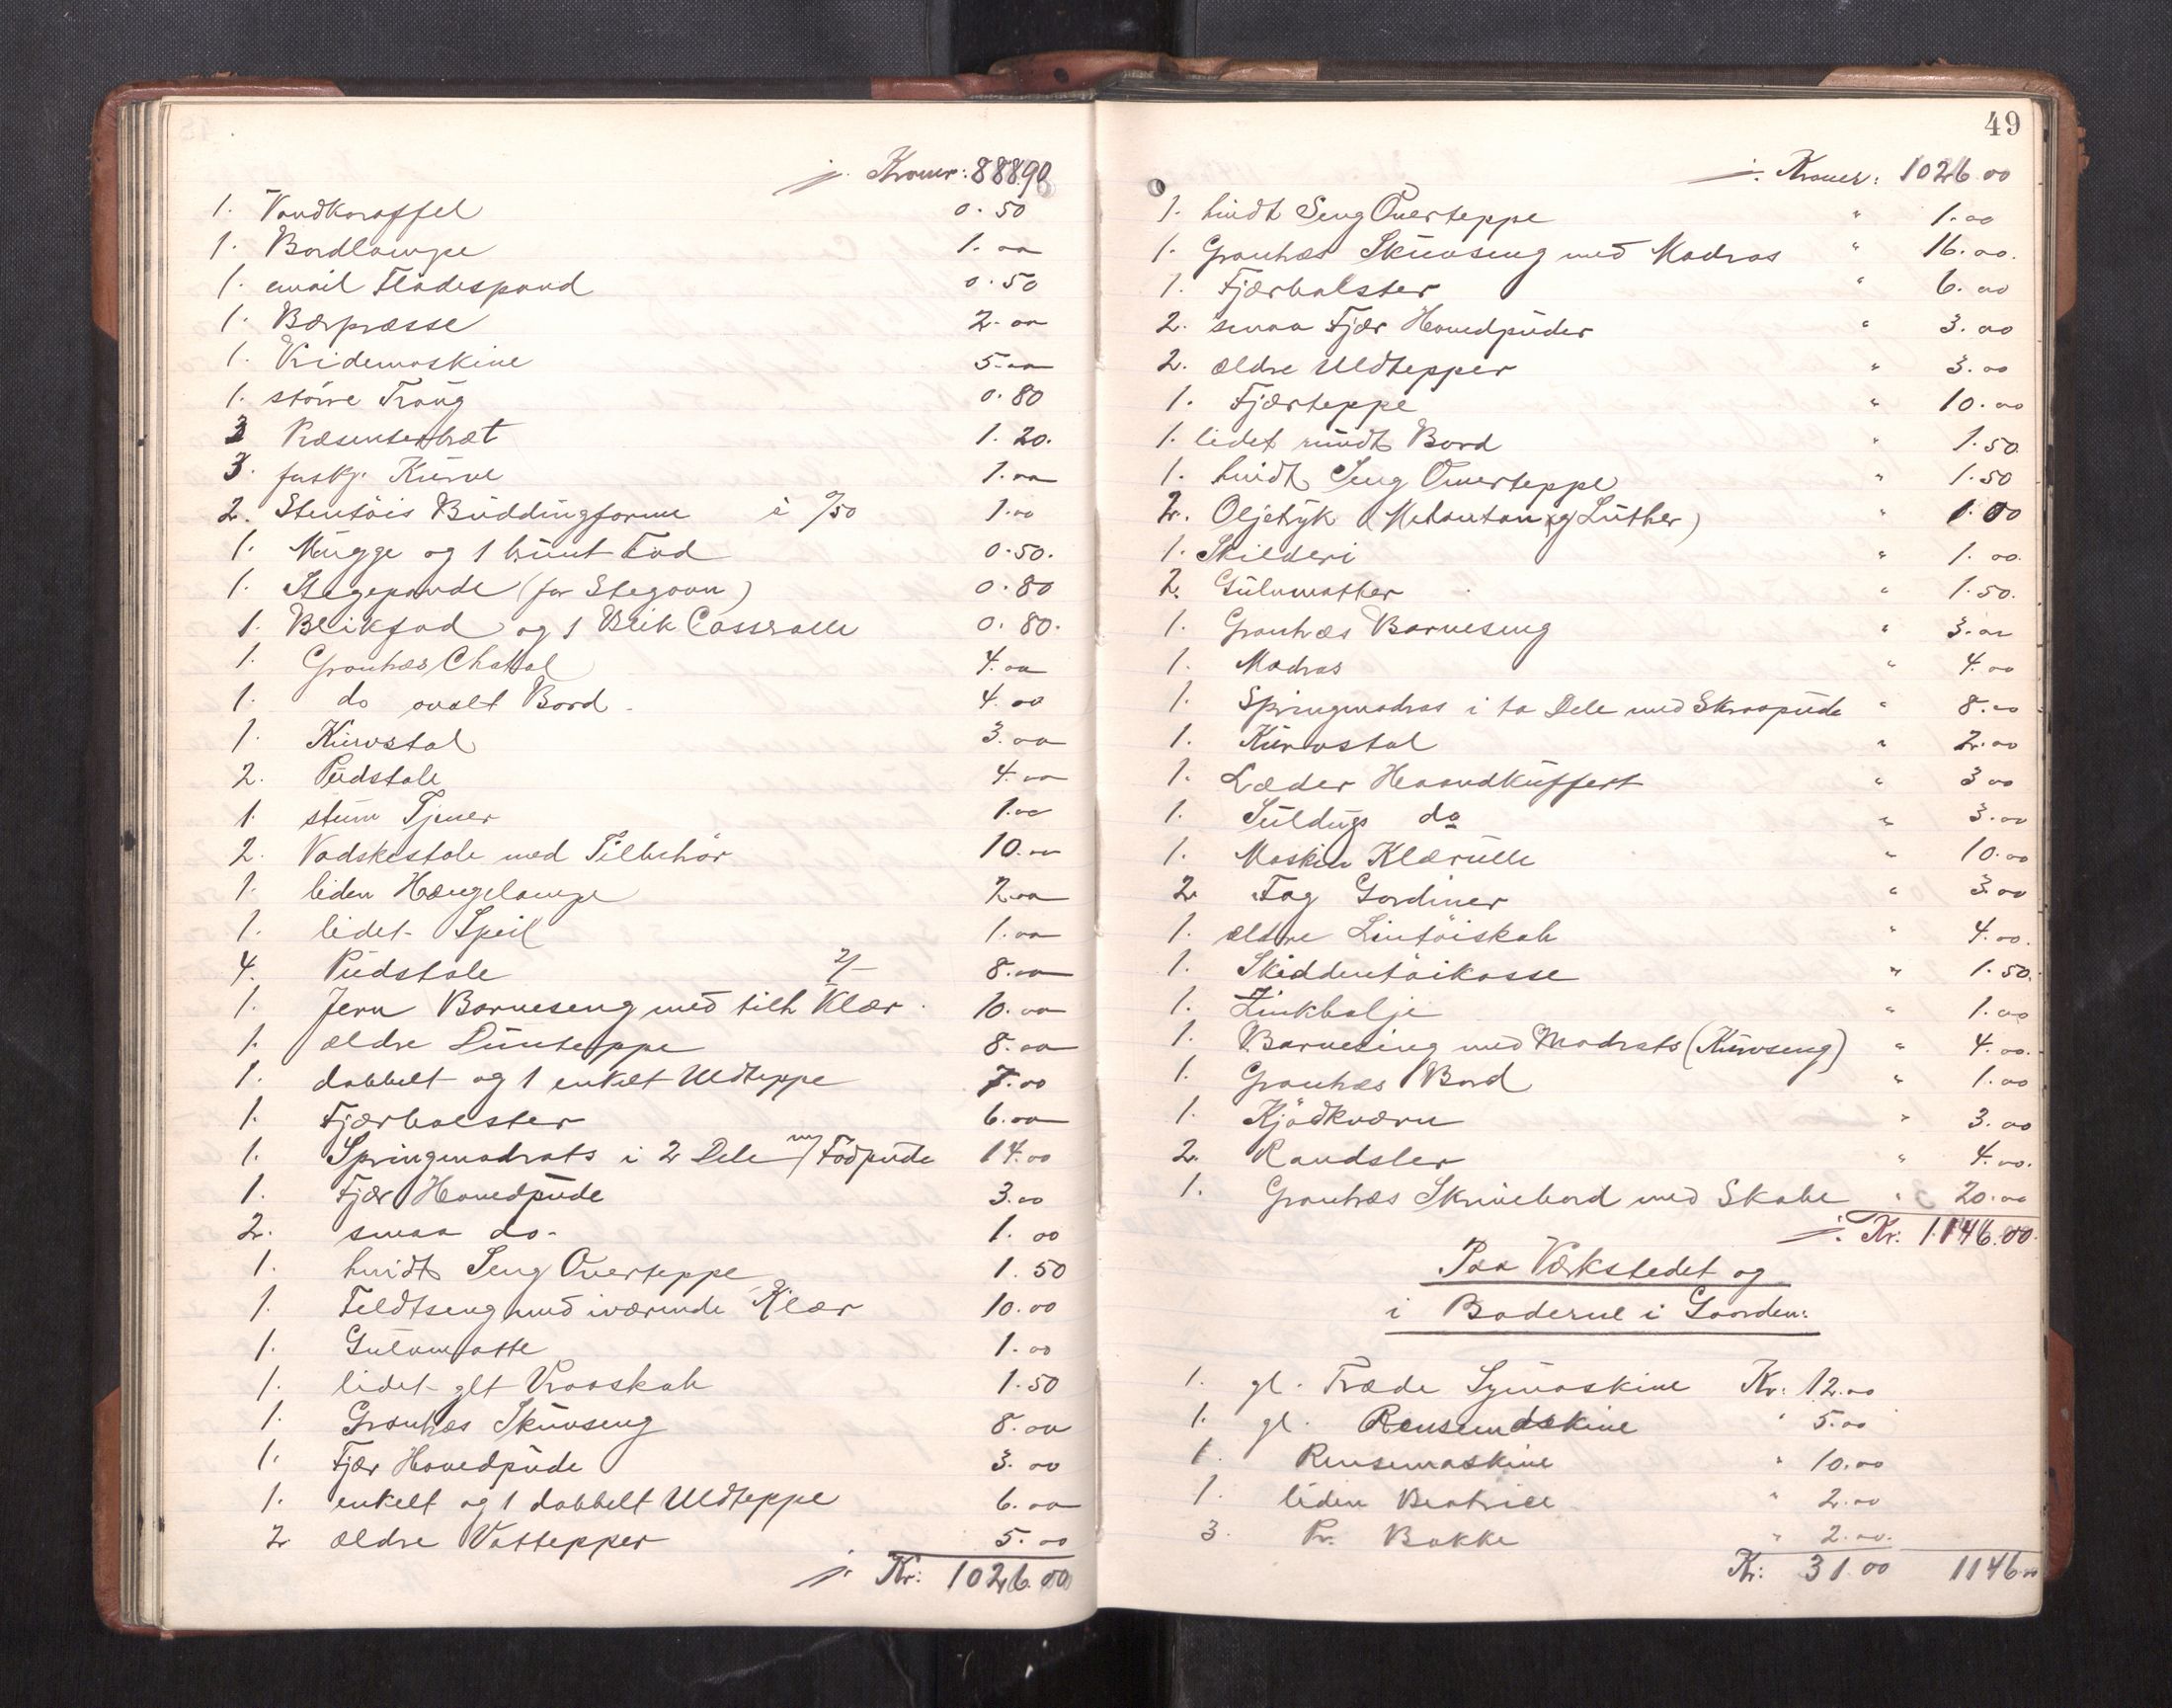 ÷ Kroner: 888.90
1. Vandkaraffel 0.50
1. Bordlampe 1.00
1. email Flødespand 0.50
1. Bærpresse 2.00
1. Vridemaskine 5.00
1. større Traug 0.80
3 Præsenterbræt 1.20.
3. forskj. Kurve 1.00
2. Stentøis Buddingforme à %50 1.00
1. Mugge og 1 brunt Fad 0.50.
1. Stegepande (for Stegovn) 0.80
1. Blikfad og 1 Blik Casserolle 0.80.
1. Granhæs Chatol 4.00
1. do ovalt Bord 4.00
1. Kurvstol 3.00
2. Pudstole 4.00
1. stum Tjener 1.00
2. Vadskestole med Tilbehör 10.00
1. liden Hængelampe 2.00
1. lidet Speil 1.00
4. Pudstole 2/– 8.00
1. Jern Barneseng med tilh Klær 10.00
1. ældre Dunteppe 8.00
1. dobbelt og 1 enkelt Uldteppe 7.00
1. Fjærbolster 6.00
1. Springmadrats i 2 Dele m/ Fodpude 14.00
1. Fjær Hovedpude 3.00
2. smaa do. 1.00
1. hvidt Seng Overteppe 1.50
1. Feldtseng med iværende Klær 10.00
1. Gulvmatte 1.00
1. lidet glt Vraaskab 1.50
1. Granhæs Skuvseng 8.00
1. Fjær Hovedpude 3.00
1. enkelt og 1 dobbelt Uldteppe 6.00
2 ældre Vattepper 5.00
÷ Kr: 1026.00
49
÷ Kroner: 1026.00
1. hvidt Seng Overteppe " 1.00
1. Granhæs Skuvseng med Madras " 16.00.
1. Fjærbolster " 6.00
2. smaa Fjær Hovedpuder " 3.00
2. ældre Uldtepper " 3.00
1. Fjærteppe " 10.00
1. lidet rundt Bord " 1.50
1. hvidt Seng Overteppe " 1.50
2. Oljetryk (Melanton og Luther) " 1.00
1. Skilderi " 1.00.
2. Gulvmatter " 1.50.
1. Granhæs Barneseng " 3.00
1. Madras " 4.00
1. Springmadras i to Dele med Skraapude " 8.00
1. Kurvstol " 2.00
1. Læder Haandkuffert " 3 00
1. Seildugs do " 3.00
1. Maskin Klærulle " 10.00
2 Fag Gardiner " 3.00
1. ældre Lintöiskab " 4.00.
1. Skiddentöikasse " 1.50.
1. Zinkbalje " 1.00
1. Barneseng med Madrats (Kurvseng) " 4.00.
1. Granhæs Bord " 1.00
1. Kjödkværn " 3.00
2. Randsler " 4.00.
1. Granhæs Skrivebord med Skabe " 20.00
÷ Kr: 1.146.00.
Paa Værkstedet og
i Boderne i Gaarden:
1. gl. Træde Symaskine Kr: 12.00
1. gl. Rensemaskine " 5.00
1. Rensemaskine " 10.00
1. liden Beatrice " 2.00
3. Pr. Bakke " 2.00.
Kr: 31.00 1146.00